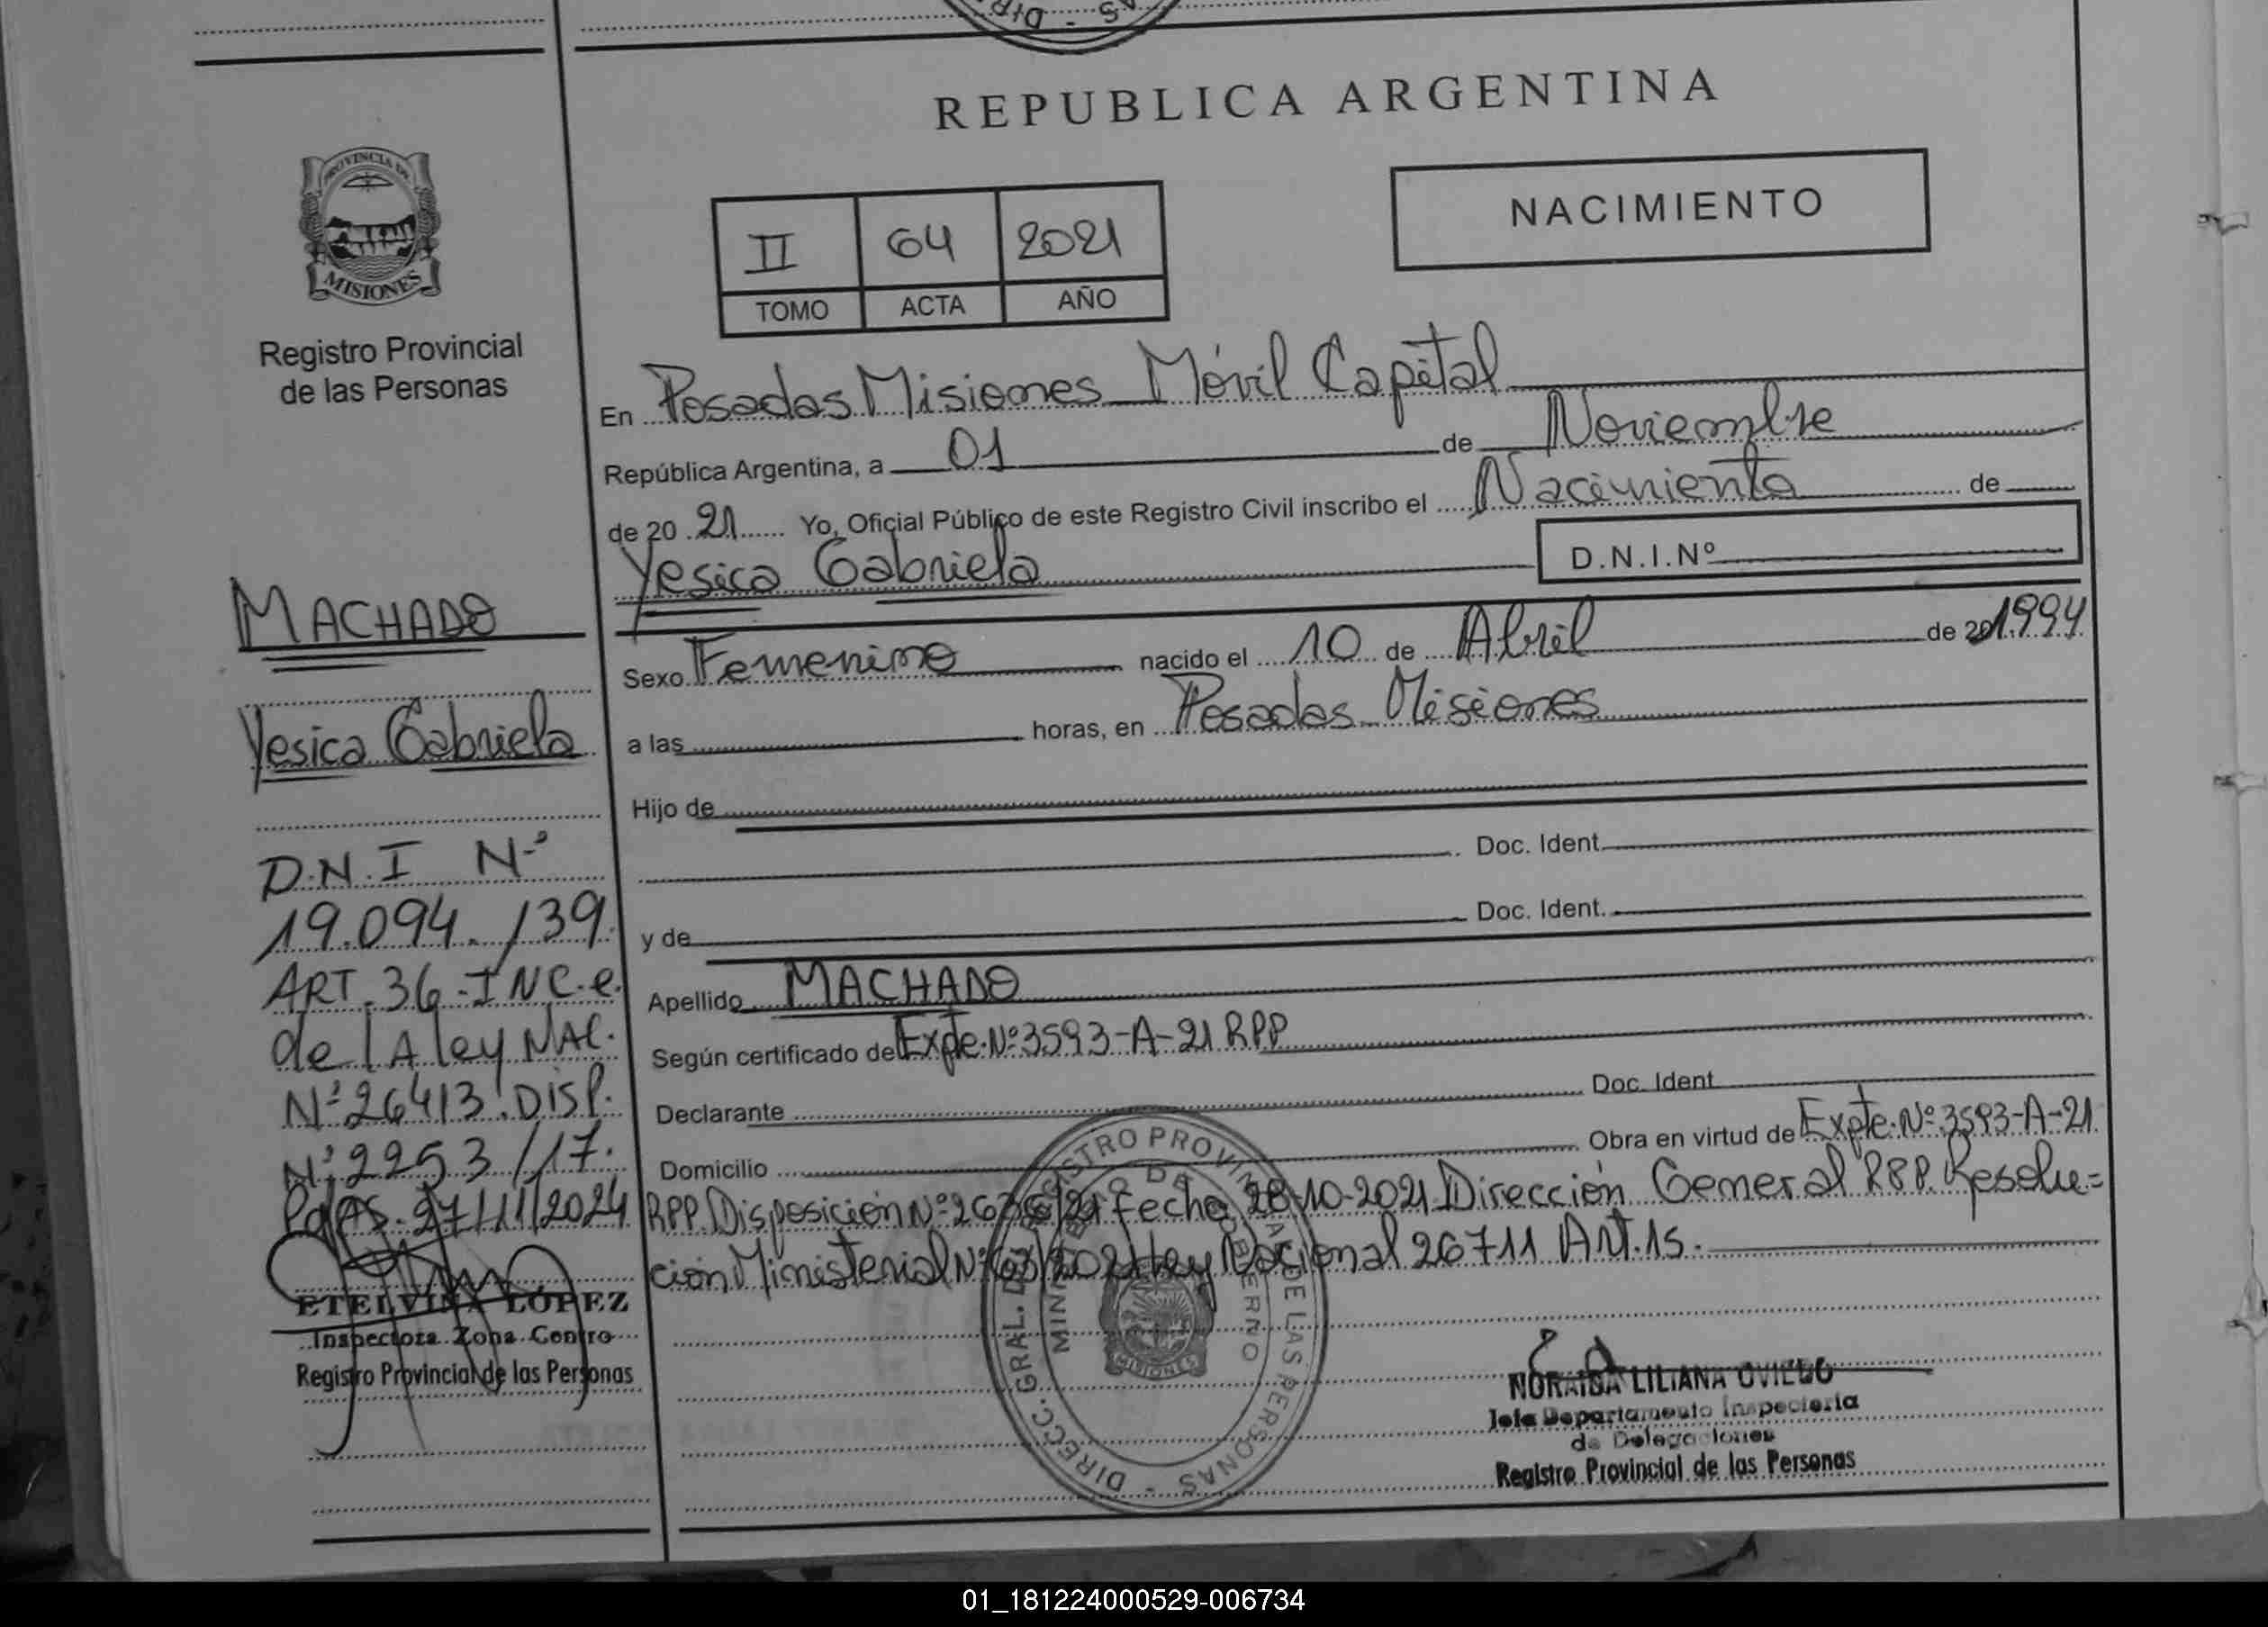 REPUBLICA ARGENTINA
PROVINCIA DE
MISIONES
Registro Provincial
de las Personas
II 64 2021
TOMO ACTA AÑO
NACIMIENTO
En Posadas Misiones Móvil Capital
República Argentina, a 01 de Noviembre
de 20 21 Yo, Oficial Público de este Registro Civil inscribo el Nacimiento de
Yesica Gabriela
D.N.I.Nº
Sexo Femenino nacido el 10 de Abril de 20 1994
a las horas, en Posadas Misiones
Hijo de
Doc. Ident.
y de Doc. Ident.
Apellido MACHADO
Según certificado de Expte. Nº 3593-A-21 RPP
Declarante Doc. Ident
Domicilio Obra en virtud de Expte. Nº 3593-A-21
RPP Disposición Nº Fecha 28-10-2021 Dirección General Resolu=
ción Ministerial Nº Ley Nacional 26711 Art.
MACHADO
Yesica Gabriela
D.N.I Nº
19.094.139
ART. 36 - INC. e.
de lA ley NAC.
Nº 26413. DISP.
Nº 2253/17.
27/11/2024
ETELVINA LÓPEZ
Inspectora Zona Centro
Registro Provincial de las Personas
DIRECC. GRAL. DE REGISTRO PROVINCIAL DE LAS PERSONAS -
MINISTERIO DE GOBIERNO
MISIONES
NORAIDA LILIANA OVIEDO
Jefa Departamento Inspectoría
de Delegaciones
Registro Provincial de las Personas
01_181224000529-006734